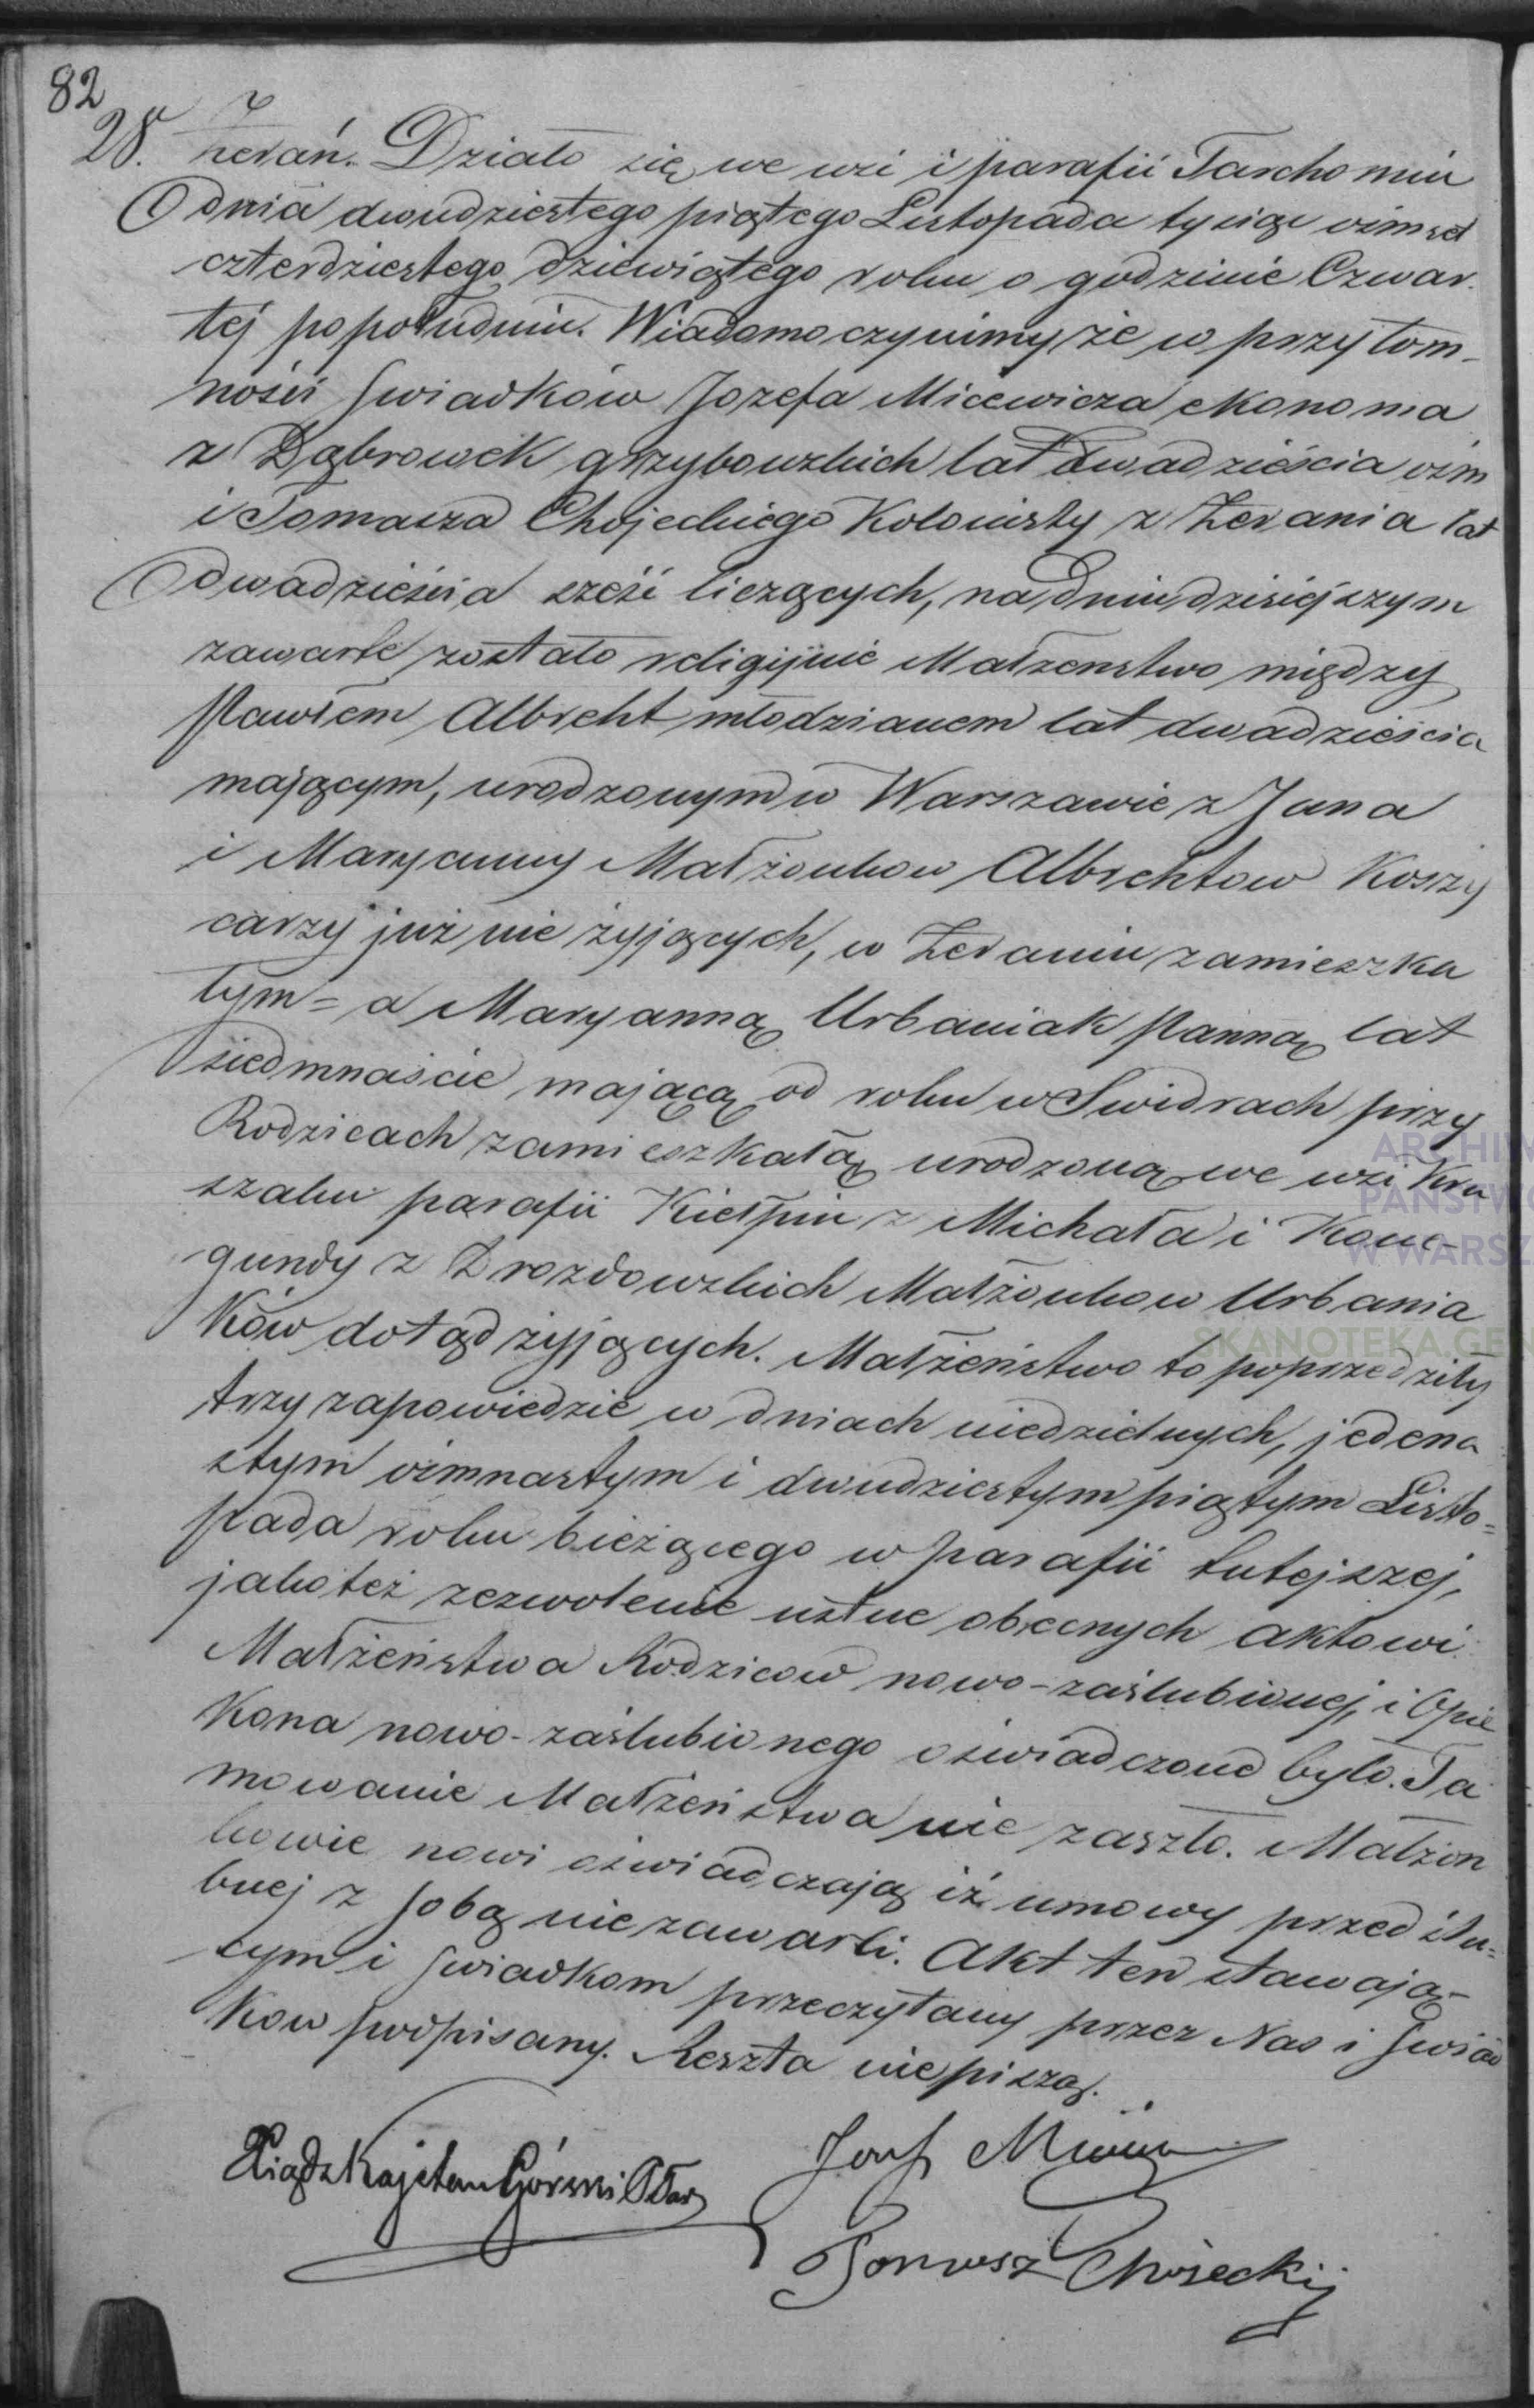 82
28. Zerań. Działo się we wsi i parafii Tarchomin
dnia dwudziestego piątego Listopada tysiąc ośmset
czterdziestego dziewiątego roku o godzinie Czwar-
tej popołudniu. Wiadomo czynimy że w przytom-
ności Swiadków Jozefa Micewicza ekonoma
z Dąbrowek grzybowskich lat dwadzieścia ośm
i Tomasza Chojeckiego Kolonisty z Zerania lat
dwadzieścia sześć liczących, na dniu dzisiejszym
zawarte zostało religijnie Małżeństwo między
Pawłem Albreht młodzianem lat dwadzieścia
mającym, urodzonym w Warszawie z Jana
i Maryanny Małżonkow Albrehtow Koszy
carzy już nie żyjących, w Zeraniu zamieszka
łym = a Maryanną Urbaniak Panną lat
siedmnaście mającą od roku w Swidrach przy
Rodzicach zamieszkałą urodzoną we wsi Kru
szaku parafii Kiełpin z Michała i Kone-
gundy z Drozdowskich Małżonkow Urbania
ków dotąd żyjących. Małżeństwo to poprzedziły
trzy zapowiedzie w dniach niedzielnych, jedena
stym ośmnastym i dwudziestym piątym Listo=
pada roku bieżącego w parafii tutejszej,
jakoteż zezwolenie ustne obecnych aktowi
Małżeństwa Rodziców nowo-zaślubionej, i Opie
kona nowo-zaślubionego oświadczone było. Ta
mowanie Małżeństwa nie zaszło. Małżon
kowie nowi oświadczają iż umowy przedślu=
bnej z sobą nie zawarli. Akt ten stawają-
cym i Swiadkom przeczytany przez Nas i Swiad
kow podpisany. Reszta nie piszą.
Xiądz Kajetan Górski
Jozef
Tomasz Chojecki
ARCHIW
PAŃSTW
W WARSZ
SKANOTEKA.GEN